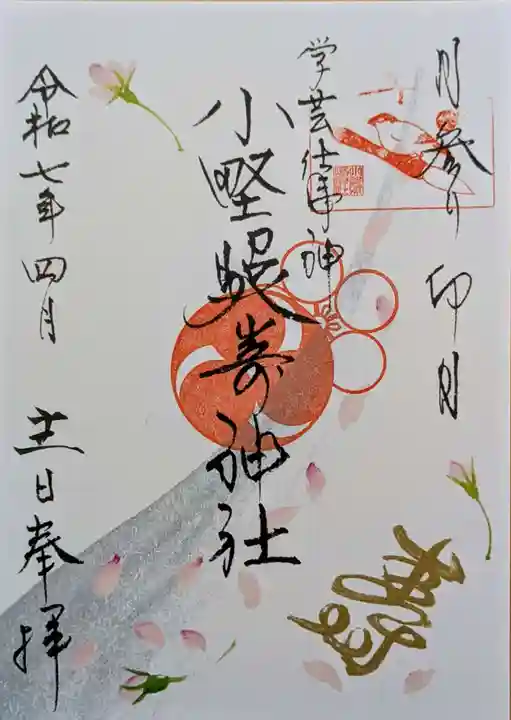 月参り 卯月
学芸仕事神
小野照嵜神社
令和七年 四月 日奉拝